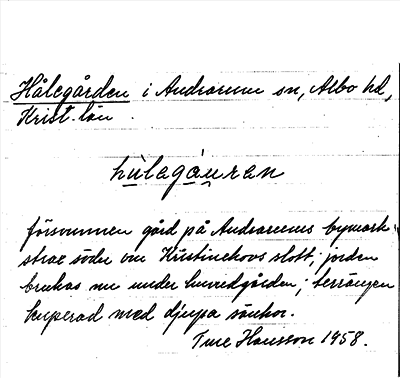 Hålegården i Andrarum sn, Albo hd,
Krist. län.
hùlegáuren
försvunnen gård på Andrarums bymark
strax söder om Kristinehovs slott; jorden
brukas nu under huvudgården; terrängen
kuperad med djupa sänkor.
Ture Hansson 1958.